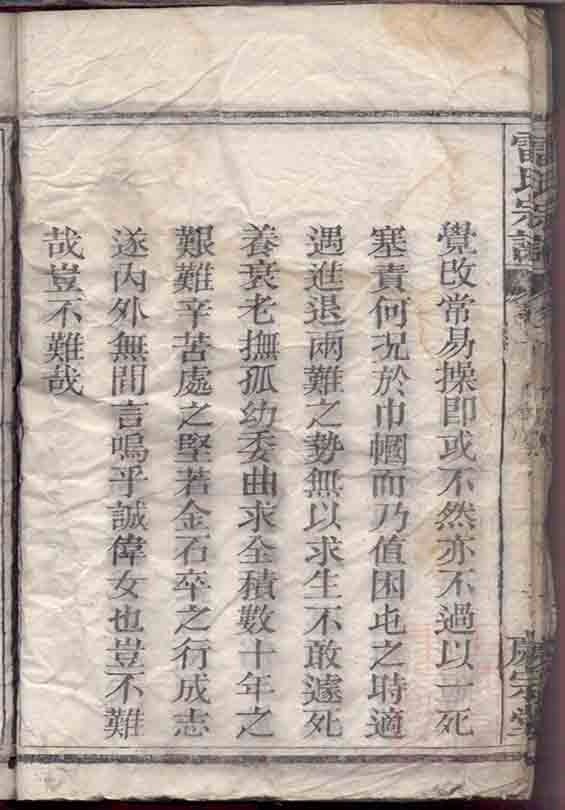 覺改常易操即或不然亦不過以一死
塞責何況於巾幗而乃值困屯之時適
遇進退兩難之勢無以求生不敢遽死
養衰老撫孤幼委曲求全積數十年之
艱難辛苦處之堅若金石卒之行成志
遂內外無間言嗚乎誠偉女也豈不難
哉豈不難哉